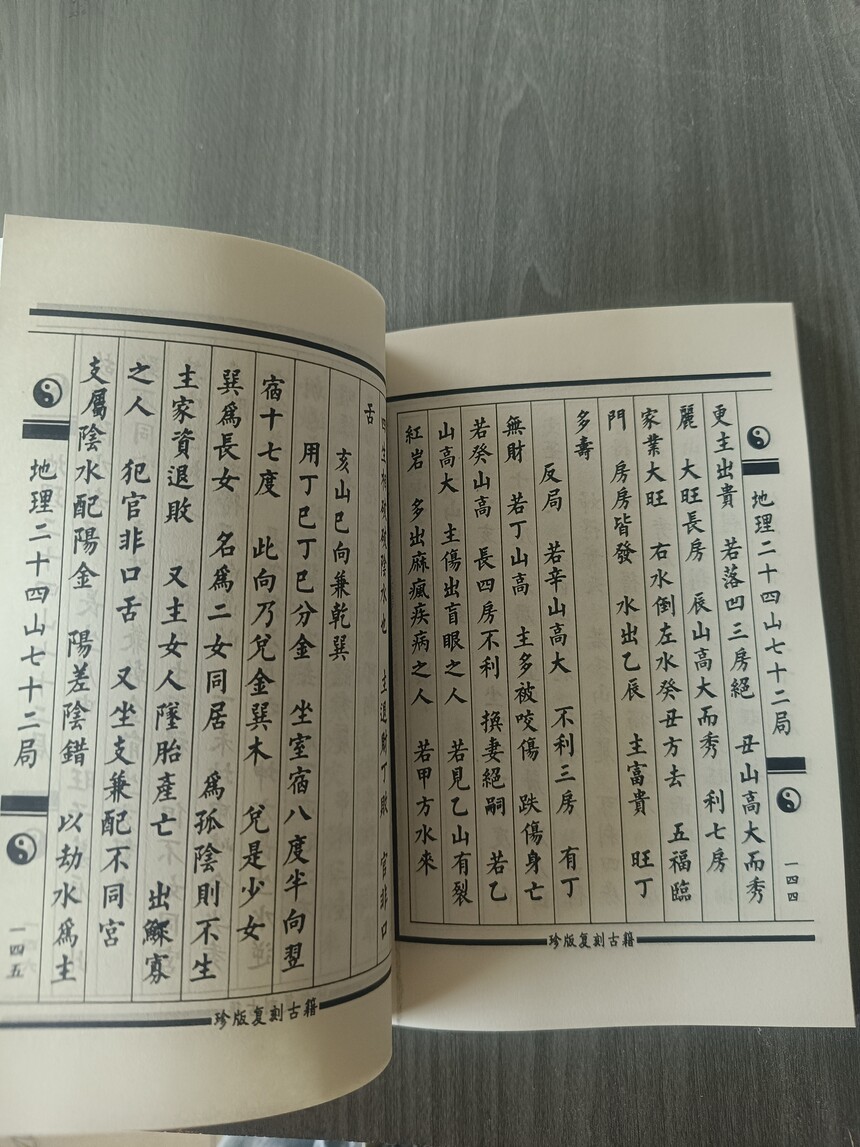 地理二十四山七十二局
一四四
更主出貴 若落凹三房絕 丑山高大而秀
麗 大旺長房 辰山高大而秀 利七房
家業大旺 右水倒左水癸丑方去 五福臨
門 房房皆發 水出乙辰 主富貴 旺丁
多壽
反局 若辛山高大 不利三房 有丁
無財 若丁山高 主多被咬傷 跌傷身亡
若癸山高 長四房不利 損妻絕嗣 若乙
山高大 主傷出盲眼之人 若見乙山有裂
紅岩 多出麻瘋疾病之人 若甲方水來
珍版复刻古籍
四生 破 陰水也 主退財丁敗 官非口
舌
亥山巳向兼乾巽
用丁巳丁巳分金 坐室宿八度半向翌
宿十七度 此向乃兌金巽木 兌是少女
巽爲長女 名爲二女同居 爲孤陰則不生
主家資退敗 又主女人墜胎產亡 出鰥寡
之人 犯官非口舌 又坐支兼配不同宮
支屬陰水配陽金 陽差陰錯 以劫水爲主
地理二十四山七十二局
一四五
珍版复刻古籍